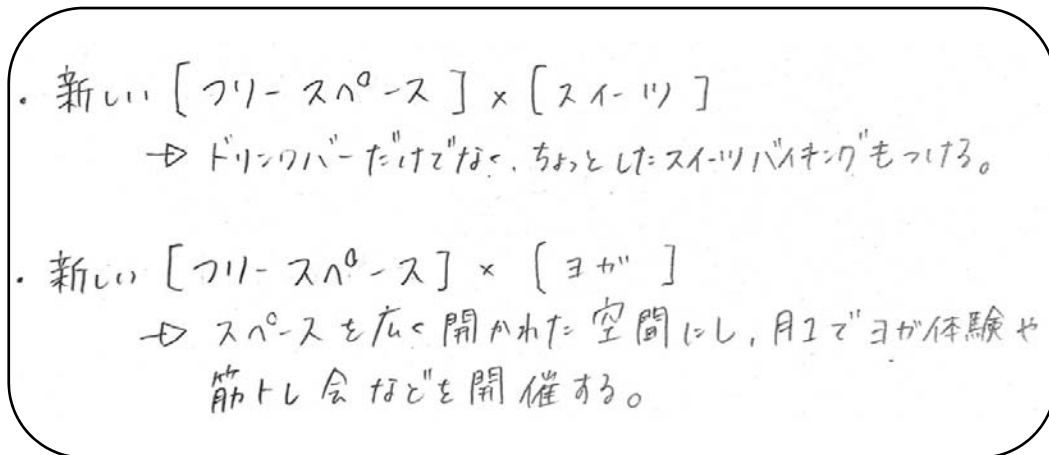 ・新しい [フリースペース] × [スイーツ]
→ ドリンクバーだけでなく、ちょっとしたスイーツバイキングもつける。
・新しい [フリースペース] × [ヨガ]
→ スペースを広く開かれた空間にし、月1でヨガ体験や
筋トレ会などを開催する。